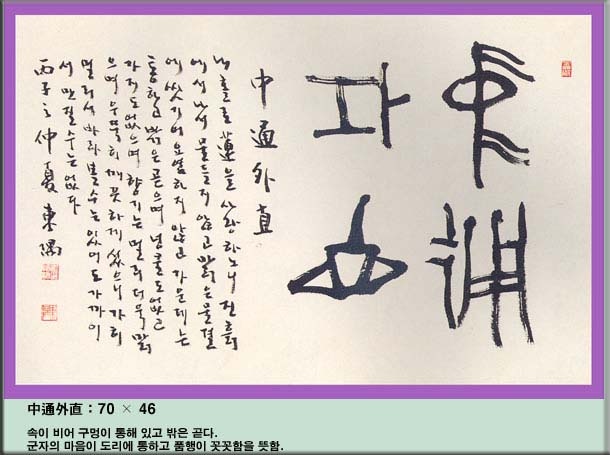 中通
外直
中通外直
나 홀로 蓮을 사랑하노니 진흙
에서 나서 물들지 않고 맑은 물결
에 씻기어 요염하지 않고 가운데는
통하고 밖은 곧으며 넝쿨도 없고
가지도 없으며 향기는 멀리 더욱 맑
으며 우뚝히 깨끗하게 섰으니 가히
멀리서 바라볼 수는 있어도 가까이
서 만질 수는 없다
丙子之仲夏 東隅
中通外直 : 70 × 46
속이 비어 구멍이 통해 있고 밖은 곧다.
군자의 마음이 도리에 통하고 품행이 꼿꼿함을 뜻함.